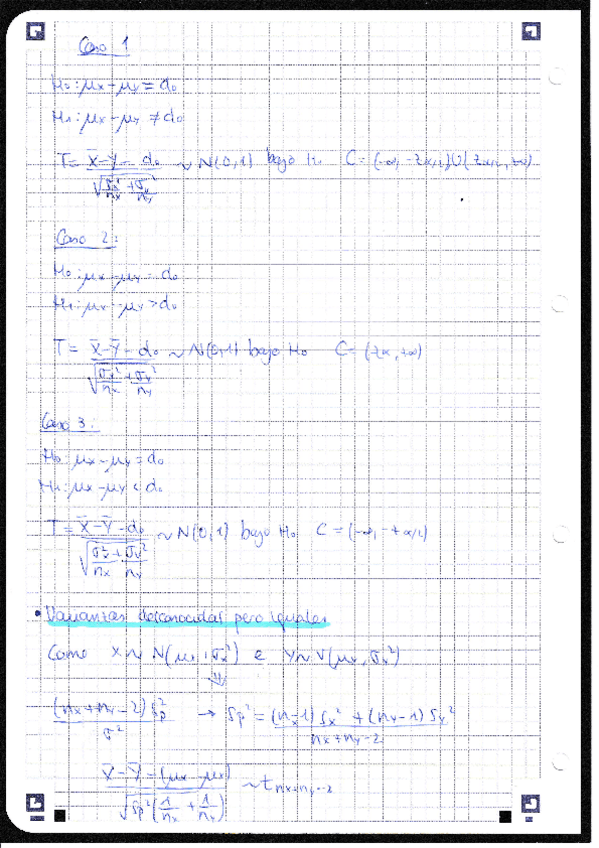 Caso 1
H₀: μx - μy = d₀
H₁: μx - μy ≠ d₀
T = (X̄ - Ȳ - d₀) / √(σx²/nx + σy²/ny) ~ N(0,1) bajo H₀ C = (-∞, -zα/2) ∪ (zα/2, +∞)
Caso 2:
H₀: μx - μy = d₀
H₁: μx - μy > d₀
T = (X̄ - Ȳ - d₀) / √(σx²/nx + σy²/ny) ~ N(0,1) bajo H₀ C = (zα, +∞)
Caso 3:
H₀: μx - μy = d₀
H₁: μx - μy < d₀
T = (X̄ - Ȳ - d₀) / √(σx²/nx + σy²/ny) ~ N(0,1) bajo H₀ C = (-∞, -zα/2)
• Varianzas desconocidas pero iguales
Como X ~ N(μx, σx²) e Y ~ N(μx, σx²)
⇓
(nx + ny - 2) Sp² / σ² → Sp² = ((nx - 1) Sx² + (ny - 1) Sy²) / (nx + ny - 2)
(X̄ - Ȳ - (μx - μx)) / √(Sp² (1/nx + 1/ny)) ~ t nx+ny-2